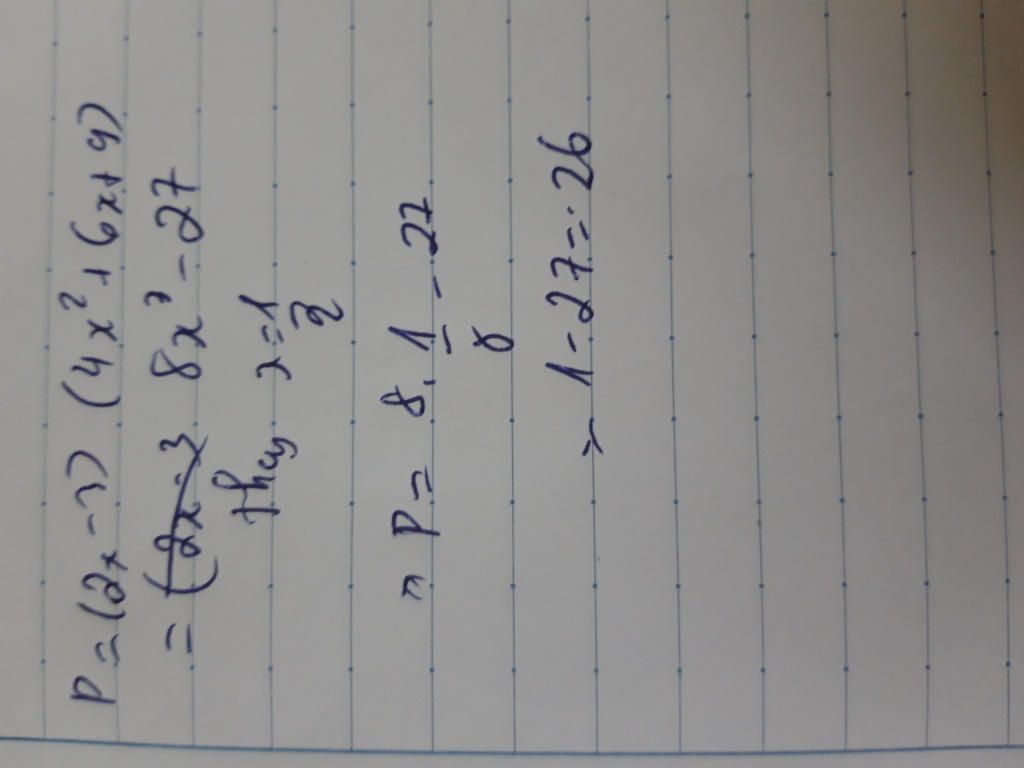 P = (2x - 3) (4x² + 6x + 9)
= (2x - 3 8x³ - 27
Thay x = 1/2
=> P = 8. 1/8 - 27
= 1 - 27 = - 26